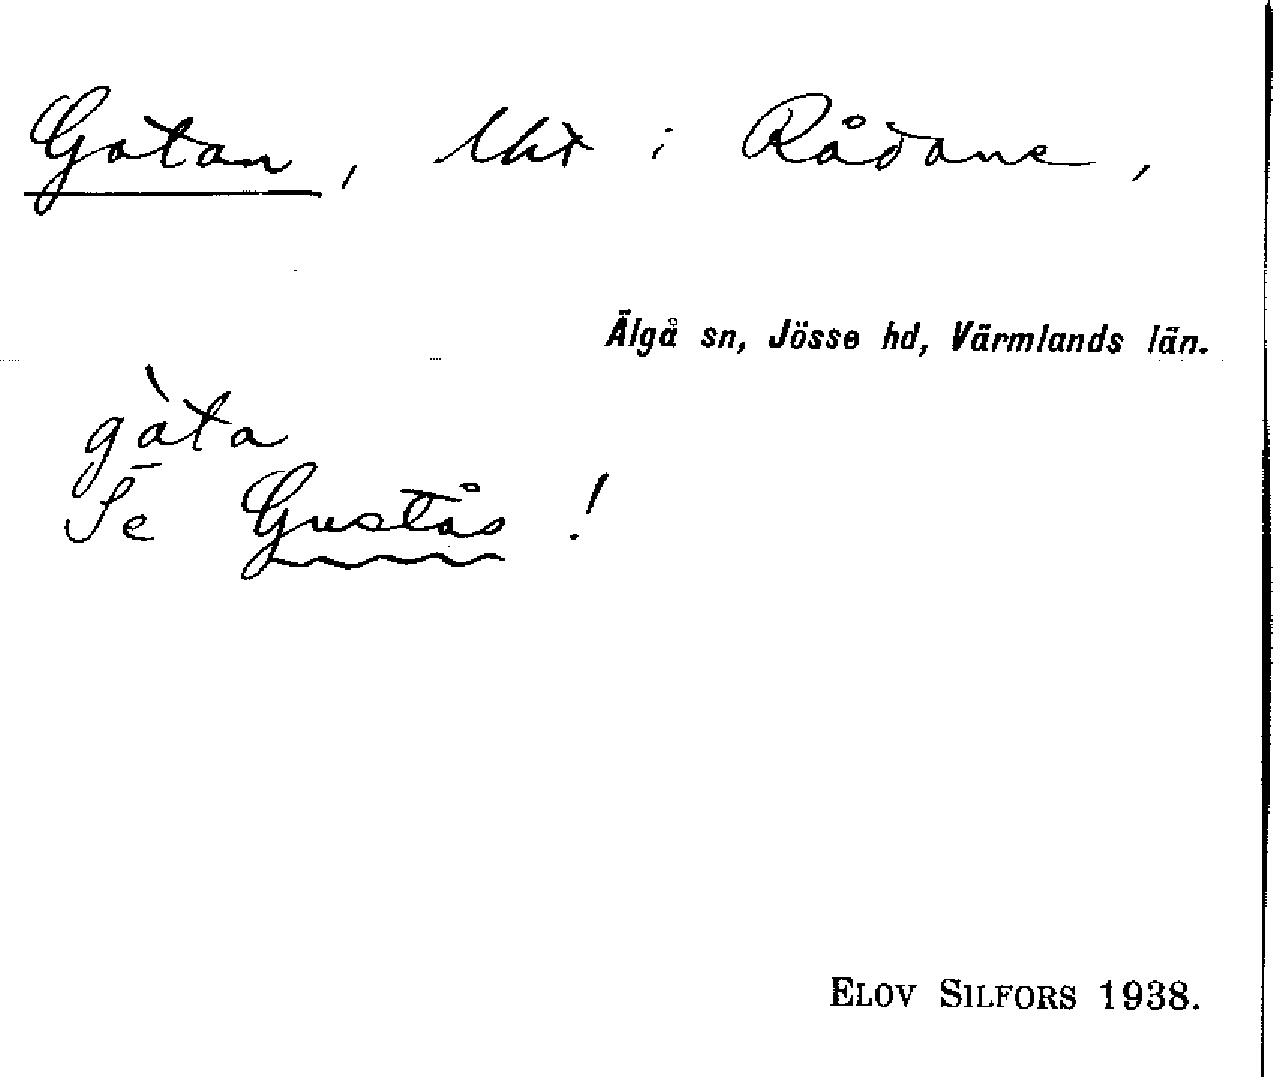 Gatan, lht i Rådane,
Älgå sn, Jösse hd, Värmlands län.
gàta
Se Gustås!
ELOV SILFORS 1938.